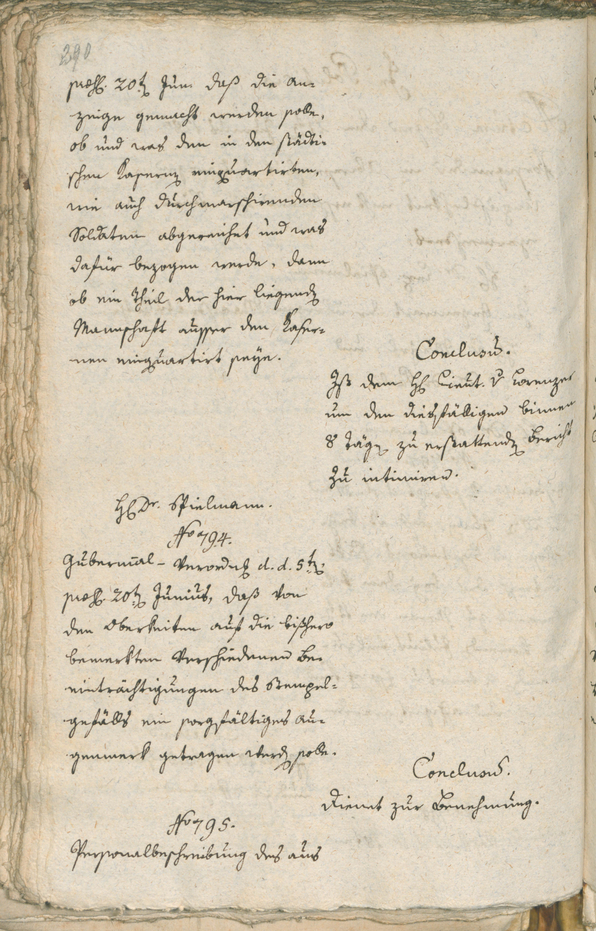 290
præs. 20t Jun. daß die an-
zeige gemacht werden solle,
ob und was den in den städti-
schen Kasernen einquartirten,
wie auch durchmarschirenden
Soldaten abgereichet und was
dafür bezogen werde, dann
ob ein Theil der hier liegenden
Mannschaft ausser den Kaser-
nen einquartirt seye.
Conclusum.
Ist dem H. Lieut. v Lorenzer
um den dießfälligen binnen
8 Tägen zu erstattenden Bericht
zu intimiren.
H. Dr. Spielmann.
No 794.
Gubernial-Verordnung d. d. 5t
præs. 20t Junius, daß von
den Oberkeiten auf die bißhero
bemerkten Verschiedenen Be-
einträchtigungen des Stempel-
gefälls ein sorgfältiges au-
genmerk getragen werden solle.
Conclusum.
Dienet zur Benehmung.
No 795.
Personalbeschreibung des aus